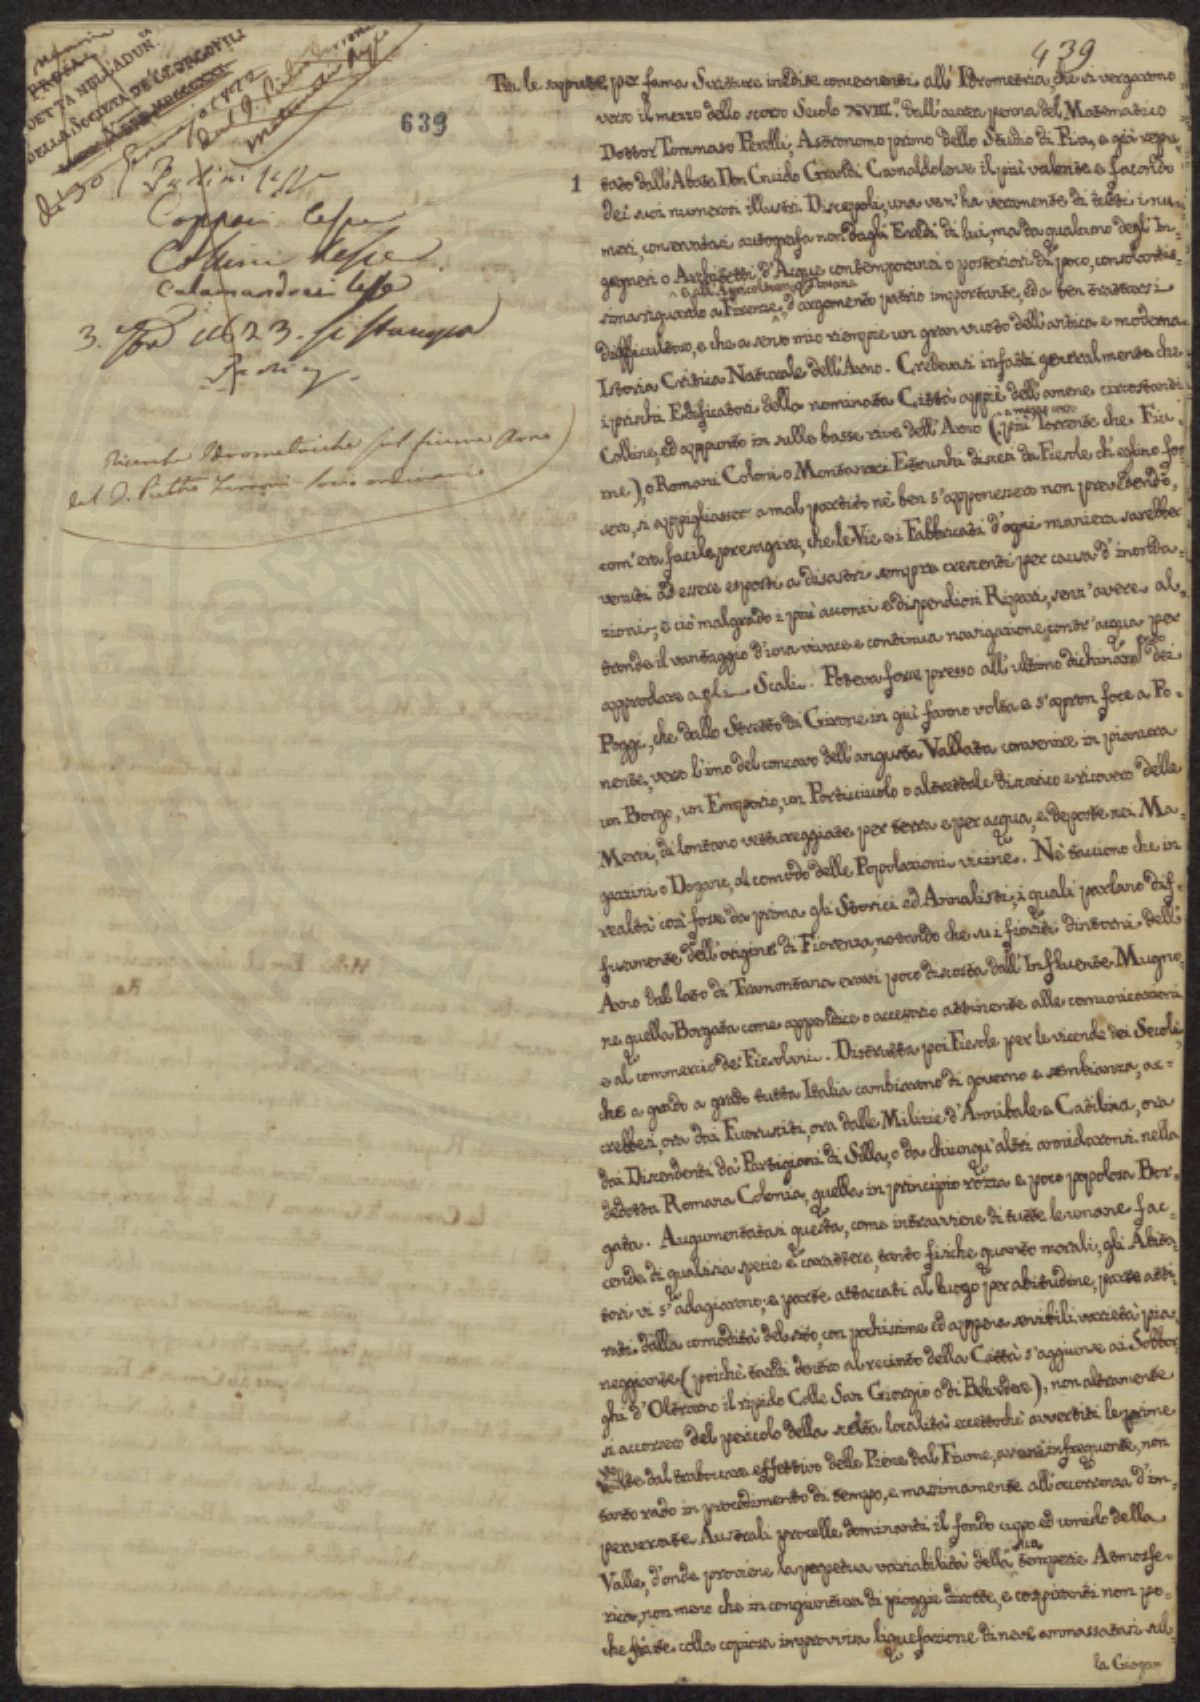 439
Memoria
PROSA
DETTA NELL'ADUN.ª
DELLA SOCIETÀ DE' GEORGOFILI
639
1
Coppini lesse
Collini lesse
Calamandrei lesse
3. 1823. si stampi
Ricerche Idrometriche sul fiume Arno
del D. Pietro Ferroni socio ordinario
Fra le sapute per fama Scritture inedite concernenti all'Idrometria, che si vergarono
verso il mezzo dello scorso Secolo XVIII.º dall'aurea penna del Matematico
Dottor Tommaso Perelli, Astronomo primo dello Studio di Pisa, e già repu-
tato dall'Abate Don Guido Grandi Camaldolese il più valente e facondo
dei suoi numerosi illustri Discepoli, una ven'ha veramente di tutti i nu-
meri, conservatasi autografa non dagli Eredi di lui, ma da qualcuno degl'In-
gegneri o Architetti d'Acque contemporanei o posteriori di poco, consolantis-
e all'Agricoltura Toscana
sima riguardo a Firenze, d'argomento patrio importante, ed a ben trattarsi
difficultoso, e che a senso mio riempie un gran vuoto dell'antica e moderna
Istoria Critica Naturale dell'Arno. Credevasi infatti generalmente che
i prischi Edificatori della nominata Città appiè dell'amene circostanti
Colline, ed appunto in sulle basse rive dell'Arno (più Torrente che Fiu-
me), o Romani Coloni o Montanari Etrushi discesi da Fiesole ch'eglino fos-
sero, si appigliasser a mal partito nè ben s'apponessero non prevedendo,
com'era facile presagire, che le Vie e i Fabbricati d'ogni maniera sarebber
venuti ad essere esposti a disastri sempre crescenti per causa d'inonda-
zioni; e ciò malgrado i più acconci e dispendiosi Ripari, senz'avere al-
tronde il vantaggio d'una vivace e continua navigazione contr'acqua per
approdare agli Scali. Poteva forse presso all'ultimo dichinare dei
Poggi, che dallo Stretto di Girone in giù fanno volta e s'apron foce a Po-
nente, verso l'imo del concavo dell'angusta Vallata convenire in pianura
un Borgo, un Emporio, un Porticciuolo o altrettale discarico e ricovero delle
Merci, di lontano vettureggiate per terra e per acqua, e deposte nei Ma-
gazzini o Dogane, al comodo delle Popolazioni vicine. Nè tacciono che in
realtà così fosse da prima gli Storici ed Annalisti, i quali parlano dif-
fusamente dell'origine di Fiorenza, notando che su i fioriti dintorni dell'
Arno dal lato di Tramontana erasi poco discosta dall'Influente Mugno-
ne quella Borgata come appendice o accessorio attinente alle comunicazioni
e al commercio dei Fiesolani. Distrutta poi Fiesole per le vicende dei Secoli,
che a grado a grado tutta Italia cambiarono di governo e sembianza, ac-
crebbesi, ora dai Fuorusciti, ora dalle Milizie d'Annibale e Catilina, ora
dai Discendenti da' Partigiani di Silla, o da chiunqu'altri annidaronsi nella
dedotta Romana Colonia, quella in principio rozza e poco popolosa Bor-
gata. Augumentatasi questa, come intravviene di tutte le umane fac-
cende di qualsisia specie e carattere, tanto fisiche quanto morali, gli Abita-
tori vi s'adagiarono; e parte attaccati al luogo per abitudine, parte atti-
rati dalla comodità del sito, con pochissime ed appena sensibili varietà pia-
neggiante (poichè tardi dentro al recinto della Città s'aggiunse ai Sobbor-
ghi d'Oltrarno il ripido Colle San Giorgio o di Belvedere), non altramente
si accorsero del pericolo della scelta località eccettochè avvertiti le prime
volte dal traboccare effettivo delle Piene dal Fiume, avvenir infrequente, non
tanto rado in procedimento di tempo, e massimamente all'occorrenza d'im-
perversate Australi procelle dominanti il fondo cupo ed umido della
Valle, d'onde proviene la perpetua variabilità della sua temperie Atmosfe-
rica, non meno che in congiuntura di pioggie dirotte, e cospiranti non po-
che fiate colla copiosa improvvisa liquefazione di nevi ammassatasi sul-
la Giogan